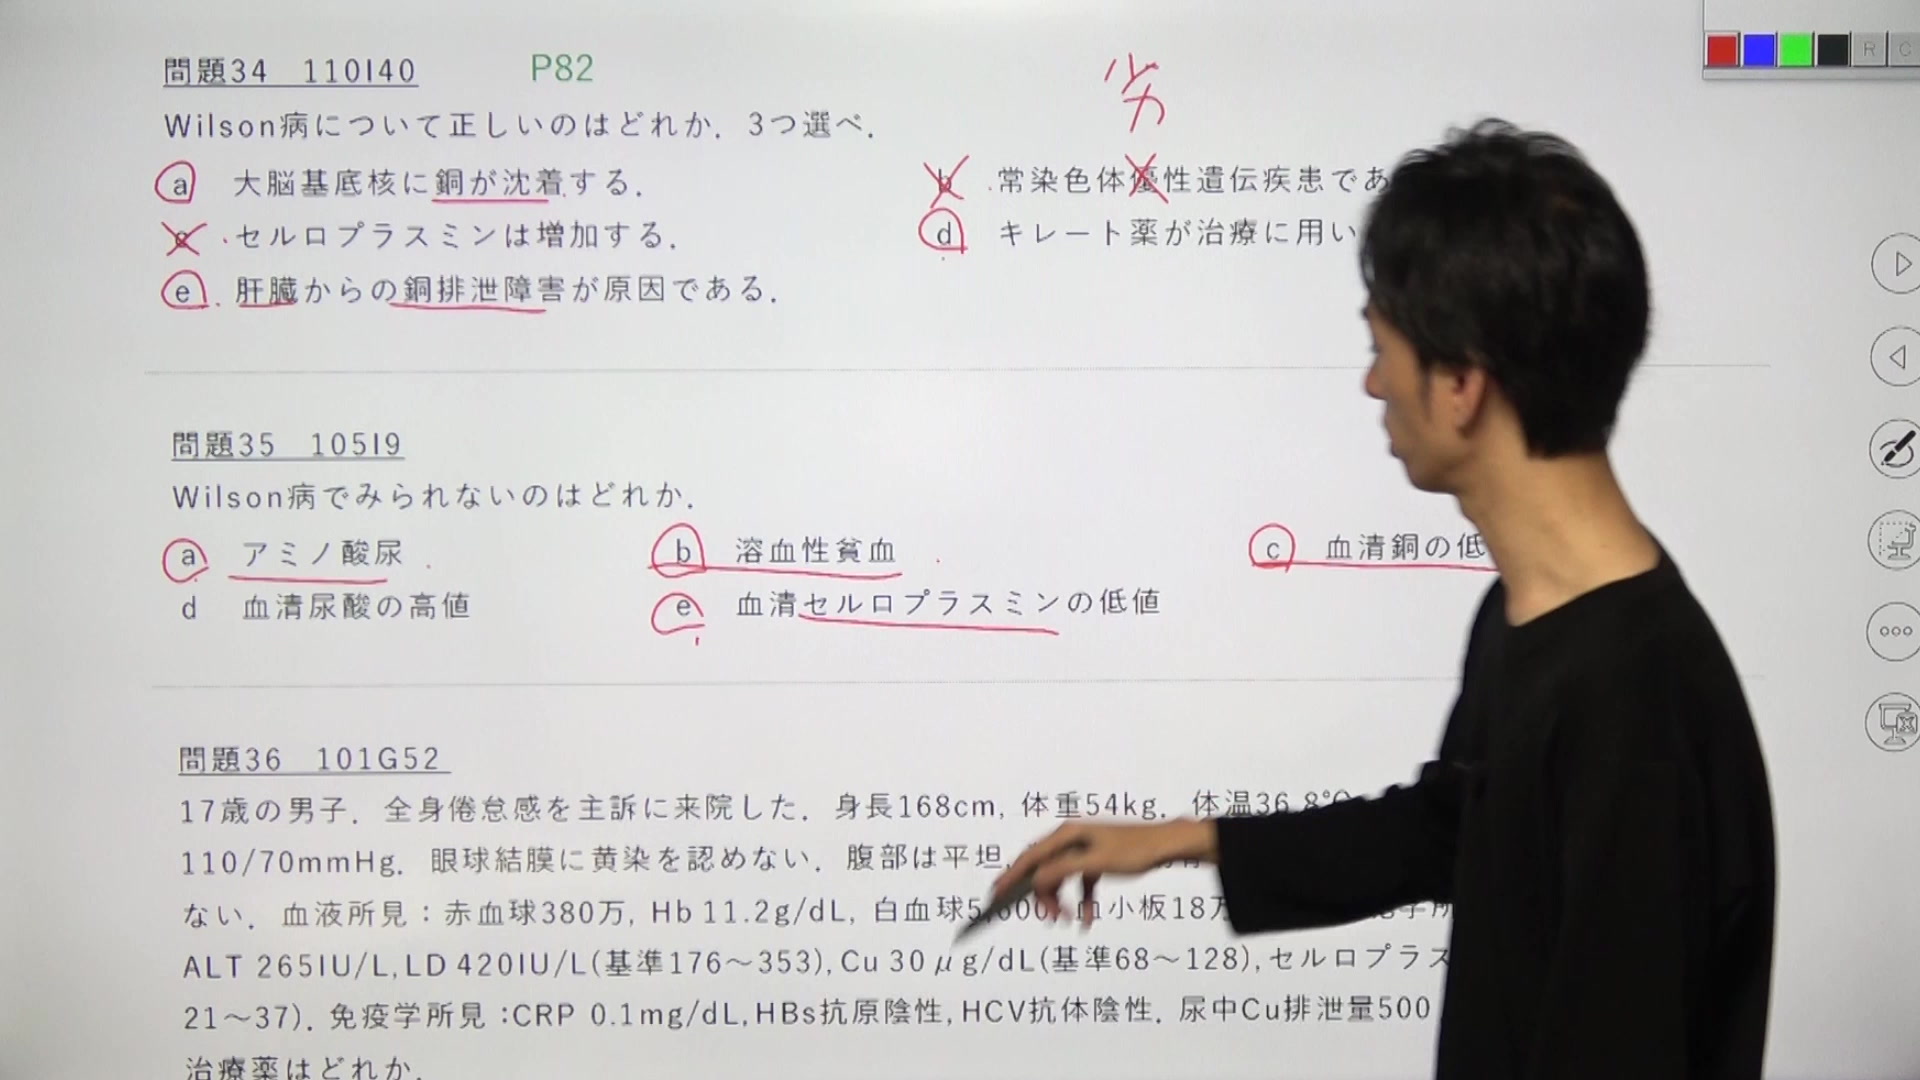 問題34 110I40 P82
劣
Wilson病について正しいのはどれか．3つ選べ．
a 大脳基底核に銅が沈着する．
b 常染色体優性遺伝疾患であ
c セルロプラスミンは増加する．
d キレート薬が治療に用い
e 肝臓からの銅排泄障害が原因である．
問題35 105I9
Wilson病でみられないのはどれか．
a アミノ酸尿 b 溶血性貧血 c 血清銅の低
d 血清尿酸の高値 e 血清セルロプラスミンの低値
問題36 101G52
17歳の男子．全身倦怠感を主訴に来院した．身長168cm, 体重54kg．体温36.8℃
110/70mmHg．眼球結膜に黄染を認めない．腹部は平坦,
ない．血液所見：赤血球380万, Hb 11.2g/dL, 白血球5,600, 血小板18万
ALT 265IU/L, LD 420IU/L(基準176〜353), Cu 30 μg/dL(基準68〜128), セルロプラス
21〜37)．免疫学所見：CRP 0.1mg/dL, HBs抗原陰性, HCV抗体陰性．尿中Cu排泄量500
治療薬はどれか．
R C